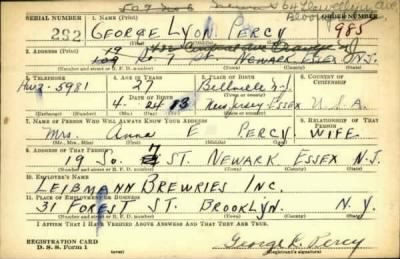 64 Llewellyn Ave
Bloomfield
SERIAL NUMBER 1. NAME (Print) ORDER NUMBER
292 GEORGE LYON PERCY 985
(First) (Middle) (Last)
2. ADDRESS (Print)
19 So. 7 ST. NEWARK ESSEX N.J.
(Number and street or R. F. D. number) (Town) (County) (State)
3. TELEPHONE 4. AGE IN YEARS 5. PLACE OF BIRTH 6. COUNTRY OF CITIZENSHIP
27 Belleville N.J.
5981 4-24-13 New Jersey Essex U.S.A.
7. NAME OF PERSON WHO WILL ALWAYS KNOW YOUR ADDRESS 8. RELATIONSHIP OF THAT PERSON
Mrs. Anna E PERCY. WIFE
9. ADDRESS OF THAT PERSON
19 So. 7 ST. NEWARK ESSEX N.J.
(Number and street or R. F. D. number) (Town) (County) (State)
10. EMPLOYER'S NAME
LEIBMANN BREWRIES INC.
11. PLACE OF EMPLOYMENT OR BUSINESS
31 FOREST ST. BROOKLYN. N.Y.
(Number and street or R. F. D. number) (Town) (County) (State)
I AFFIRM THAT I HAVE VERIFIED ABOVE ANSWERS AND THAT THEY ARE TRUE.
REGISTRATION CARD
D. S. S. Form 1
George L. Percy
(Registrant's signature)